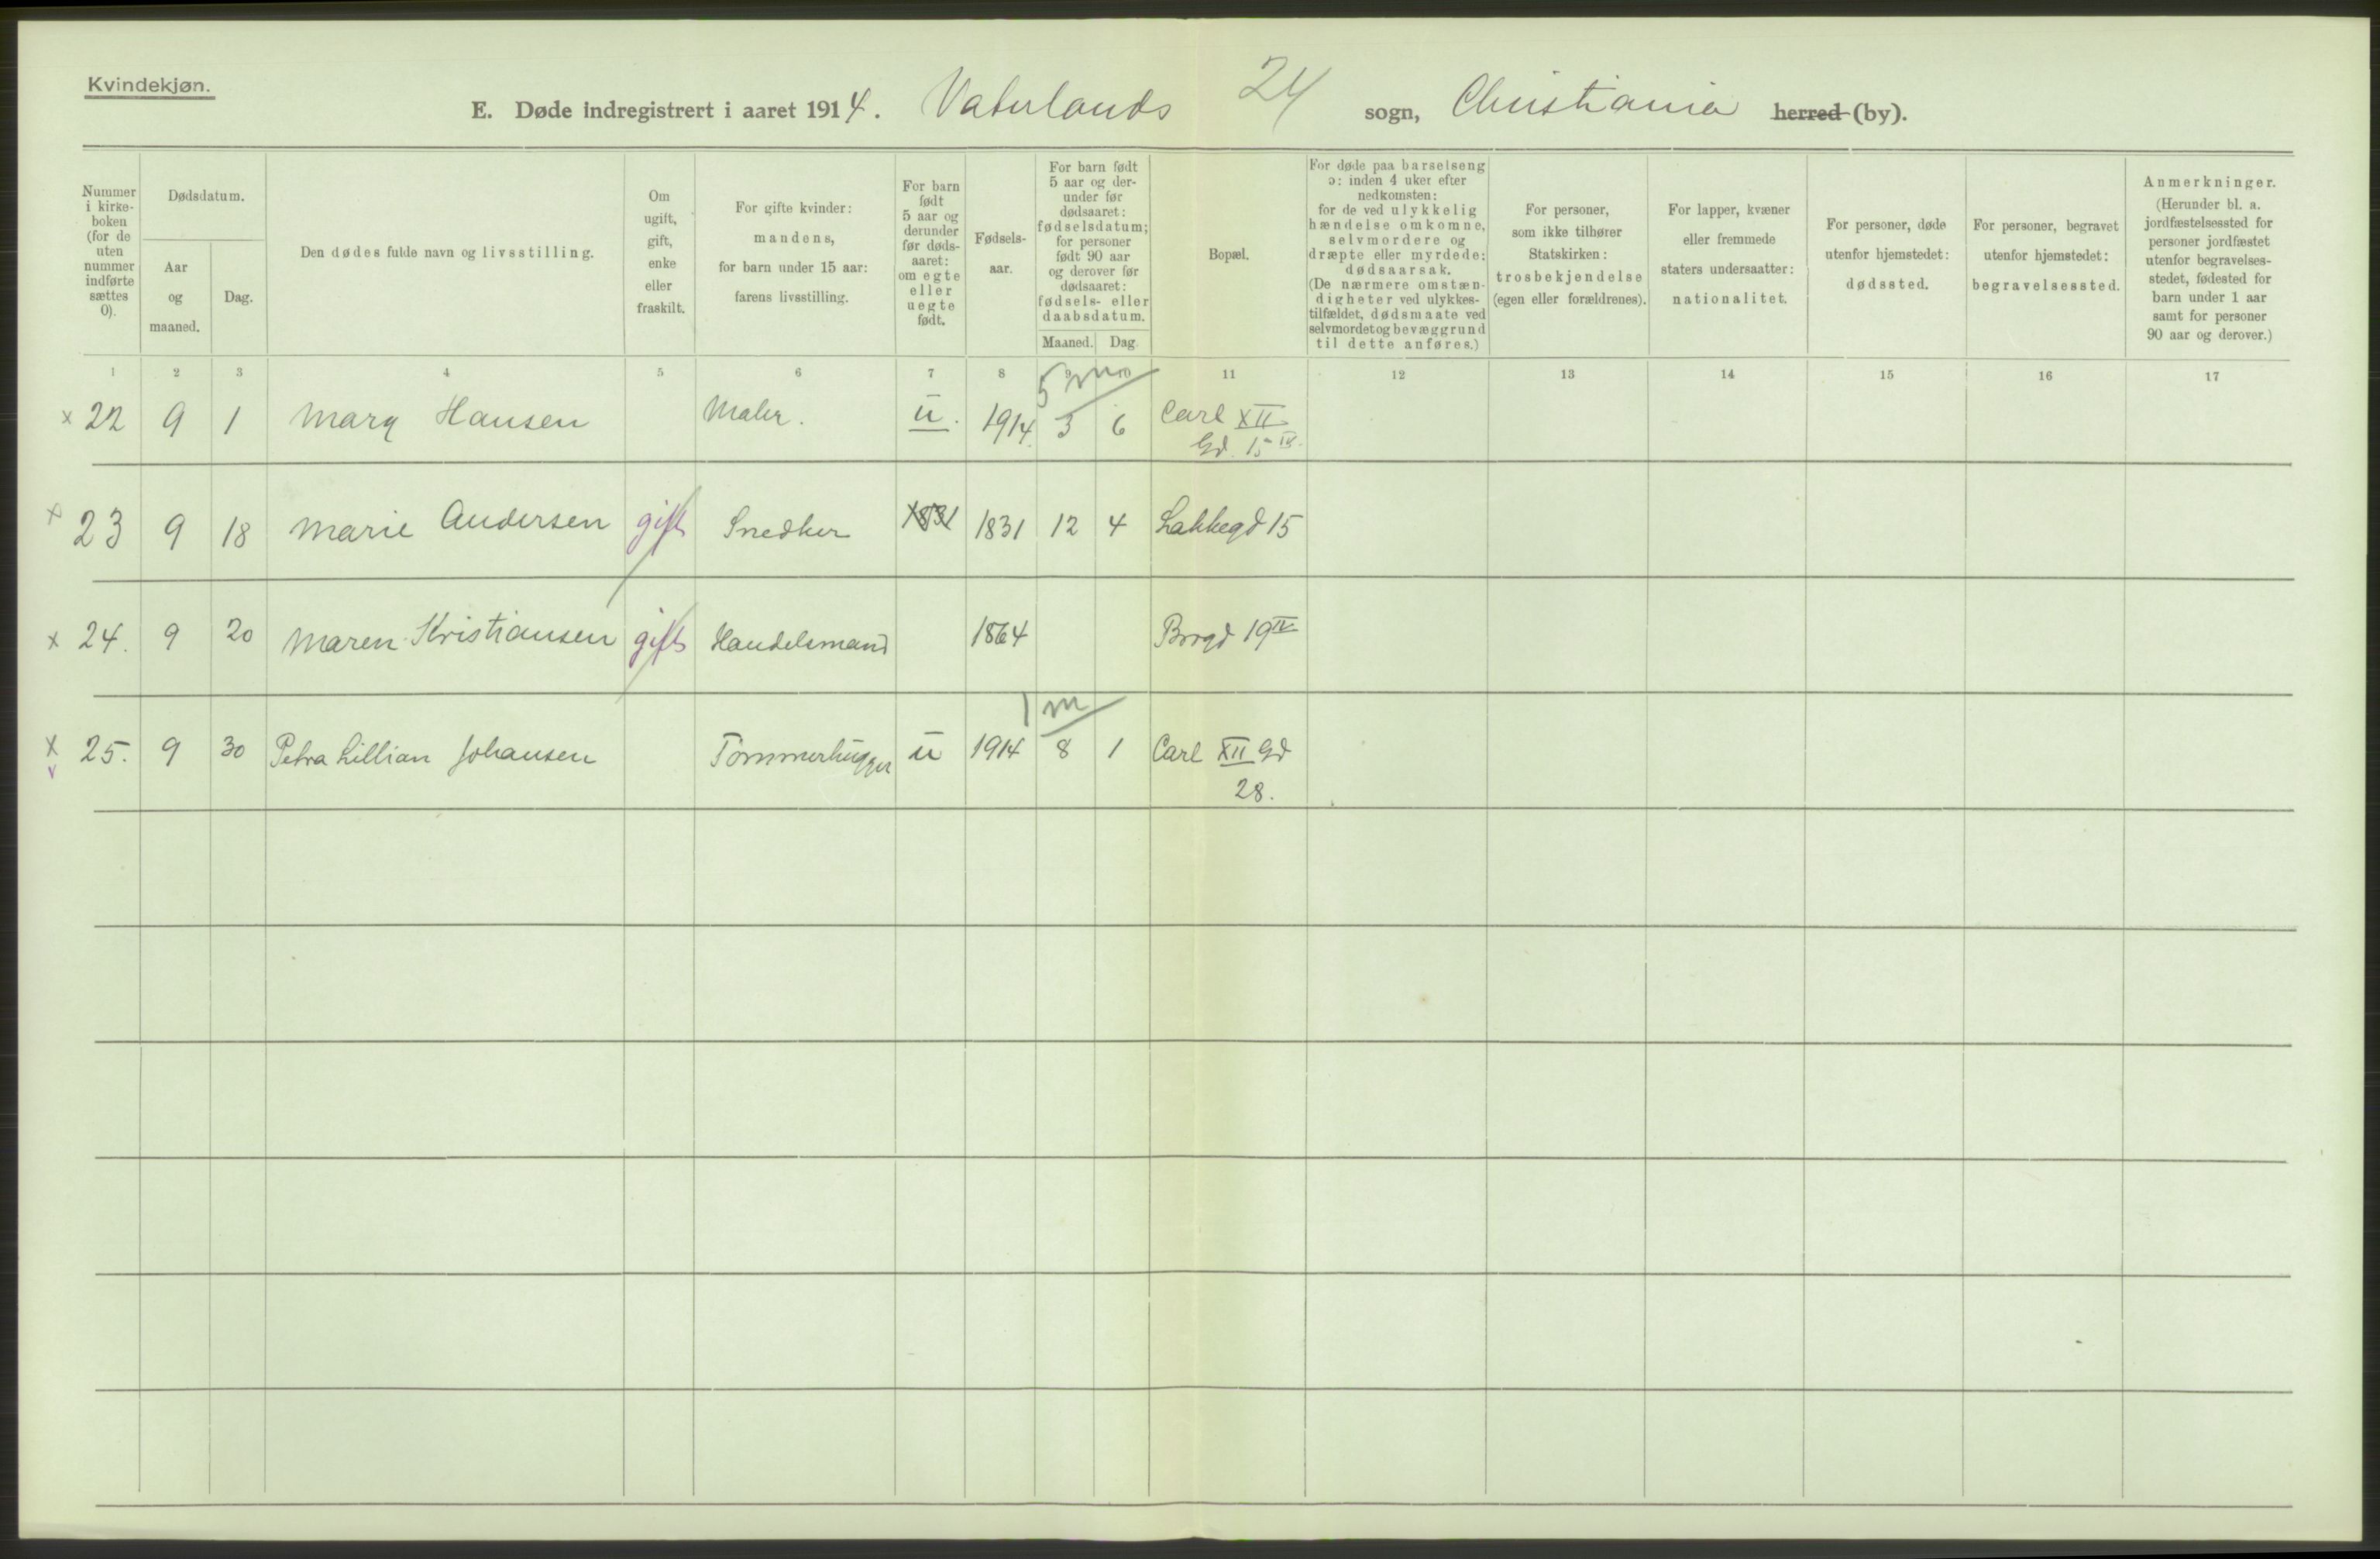 Kvindekjøn.
E. Døde indregistrert i aaret 1914. Vaterlands 24 sogn, Christiania herred (by).
Nummer i kirkeboken (for de uten nummer indførte sættes 0).
Dødsdatum.
Aar og maaned.
Dag.
Den dødes fulde navn og livsstilling.
Om ugift, gift, enke eller fraskilt.
For gifte kvinder: mandens, for barn under 15 aar: farens livsstilling.
For barn født 5 aar og derunder før dødsaaret: om egte eller uegte født.
Fødselsaar.
For barn født 5 aar og derunder før dødsaaret: fødselsdatum; for personer født 90 aar og derover før dødsaaret: fødsels- eller daabsdatum.
Maaned. Dag.
Bopæl.
For døde paa barselseng ɔ: inden 4 uker efter nedkomsten: for de ved ulykkelig hændelse omkomne, selvmordere og dræpte eller myrdede: dødsaarsak. (De nærmere omstændigheter ved ulykkestilfældet, dødsmaate ved selvmordet og bevæggrund til dette anføres.)
For personer, som ikke tilhører Statskirken: trosbekjendelse (egen eller forældrenes).
For lapper, kvæner eller fremmede staters undersaatter: nationalitet.
For personer, døde utenfor hjemstedet: dødssted.
For personer, begravet utenfor hjemstedet: begravelsessted.
Anmerkninger. (Herunder bl. a. jordfæstelsessted for personer jordfæstet utenfor begravelsesstedet, fødested for barn under 1 aar samt for personer 90 aar og derover.)
1 2 3 4 5 6 7 8 9 10 11 12 13 14 15 16 17
5 m
x 22 9 1 Mary Hansen Maler. u. 1914. 3 6 Carl XII
Gd. 15 IV.
x 23 9 18 Marie Andersen gift Snedker 1831 1831 12 4 Lakkegd 15
x 24. 9 20 Maren Kristiansen gift Handelsmand 1864 Brogd 19 IV
1 m
x v 25. 9 30 Petra Lillian Johansen Tømmerhugger u 1914 8 1 Carl XII Gd
28.